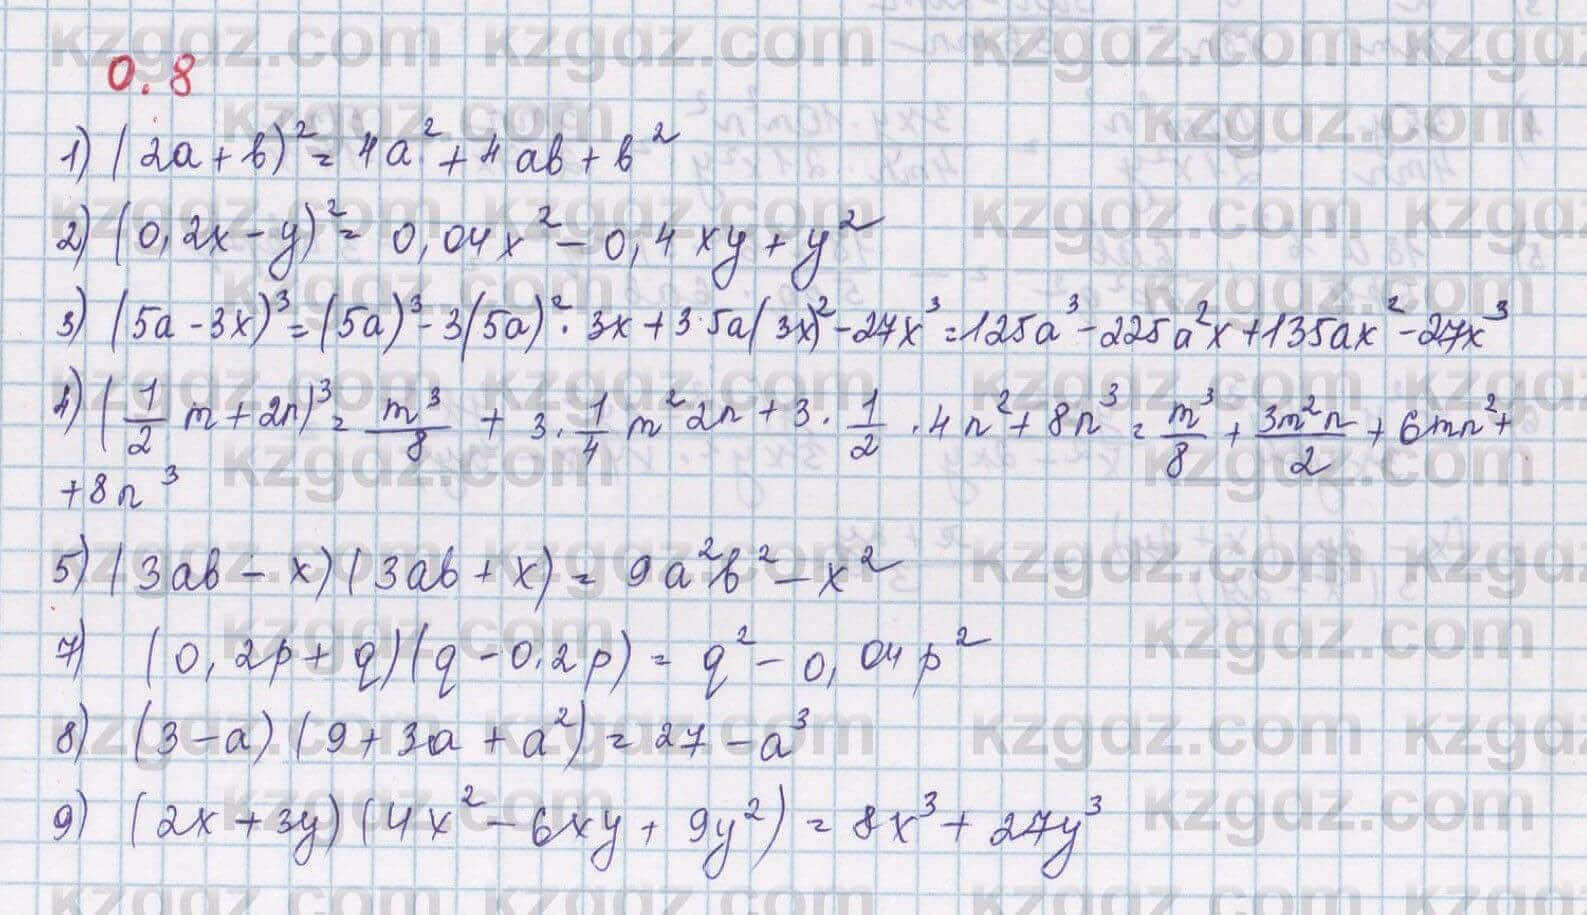 0.8
1) (2a + b)² = 4a² + 4ab + b²
2) (0,2x - y)² = 0,04x² - 0,4xy + y²
3) (5a - 3x)³ = (5a)³ - 3(5a)² · 3x + 3·5a(3x)² - 27x³ = 125a³ - 225a²x + 135ax² - 27x³
4) (1/2 m + 2n)³ = m³/8 + 3 · 1/4 m² 2n + 3 · 1/2 · 4n² + 8n³ = m³/8 + 3m²n/2 + 6mn² +
+ 8n³
5) (3ab - x)(3ab + x) = 9a²b² - x²
7) (0,2p + q)(q - 0,2p) = q² - 0,04p²
8) (3 - a)(9 + 3a + a²) = 27 - a³
9) (2x + 3y)(4x² - 6xy + 9y²) = 8x³ + 27y³
kzgdz.com